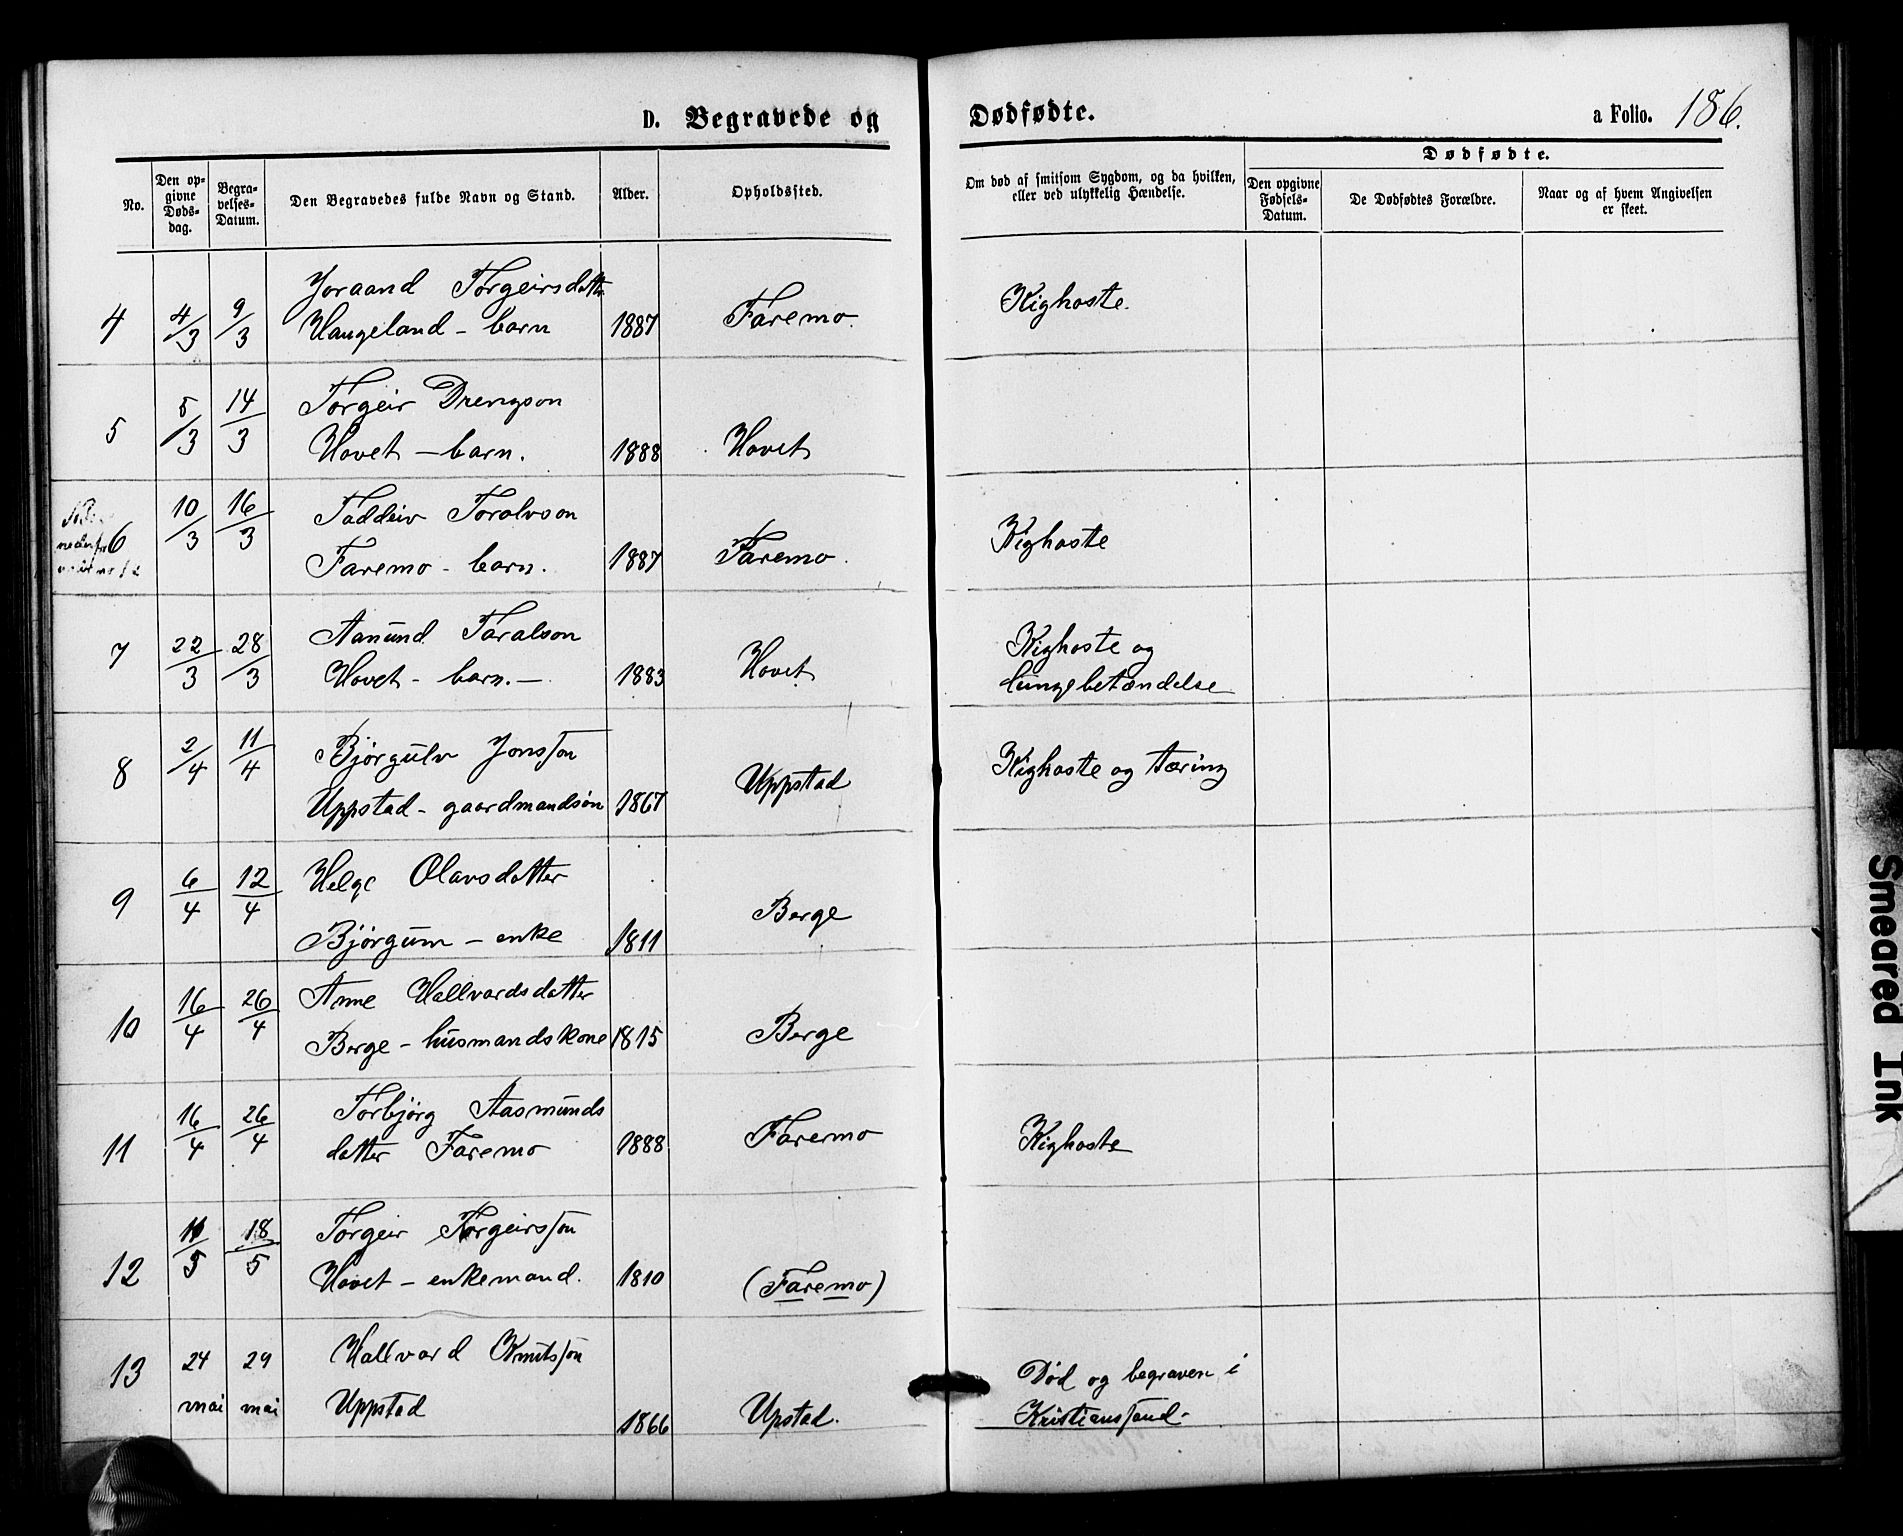 D. Begravede og Dødfødte. a Folio. 186.
No. Den opgivne Dødsdag. Begravelses-Datum. Den Begravedes fulde Navn og Stand. Alder. Opholdssted. Om død af smitsom Sygdom, og da hvilken, eller ved ulykkelig Hændelse. Dødfødte.
Den opgivne Fødsels-Datum. De Dødfødtes Forældre. Naar og af hvem Angivelsen er skeet.
4 4/3 9/3 Joraand Torgeirsdatter
Haugeland - barn 1887 Faremo. Kighoste.
5 5/3 14/3 Torgeir Drengson
Hovet - barn. 1888 Hovet
6 10/3 16/3 Taddeiv Toralvson
Faremo - barn. 1887 Faremo. Kighoste
7 22/3 28/3 Aanund Taralson
Hovet - barn. - 1883 Hovet Kighoste og
lungebetændelse
8 2/4 11/4 Bjørgulv Jonsson
Uppstad - gaardmandsøn 1867 Uppstad Kighoste og tæring
9 6/4 12/4 Helge Olavsdatter
Bjørgum - enke 1811 Berge
10 16/4 26/4 Anne Hallvardsdatter
Berge - husmandskone 1815 Berge
11 16/4 26/4 Torbjørg Aasmunds
datter Faremo 1888 Faremo Kighoste
12 11/5 18/5 Torgeir Torgeirsson
Hovet - enkemand. 1810 (Faremo)
13 24 mai 29 mai Hallvard Knutsson
Uppstad 1866 Upstad. Død og begraven i
Kristianssand.
Smeared Ink